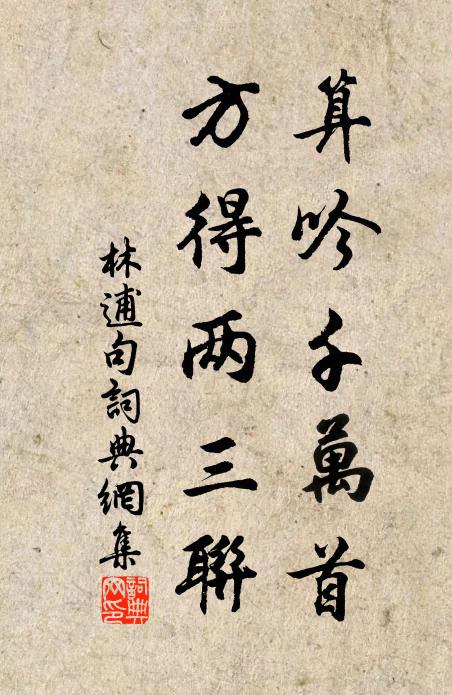 算吟千萬首
方得两三聯
林逋句詞典網集
詞典